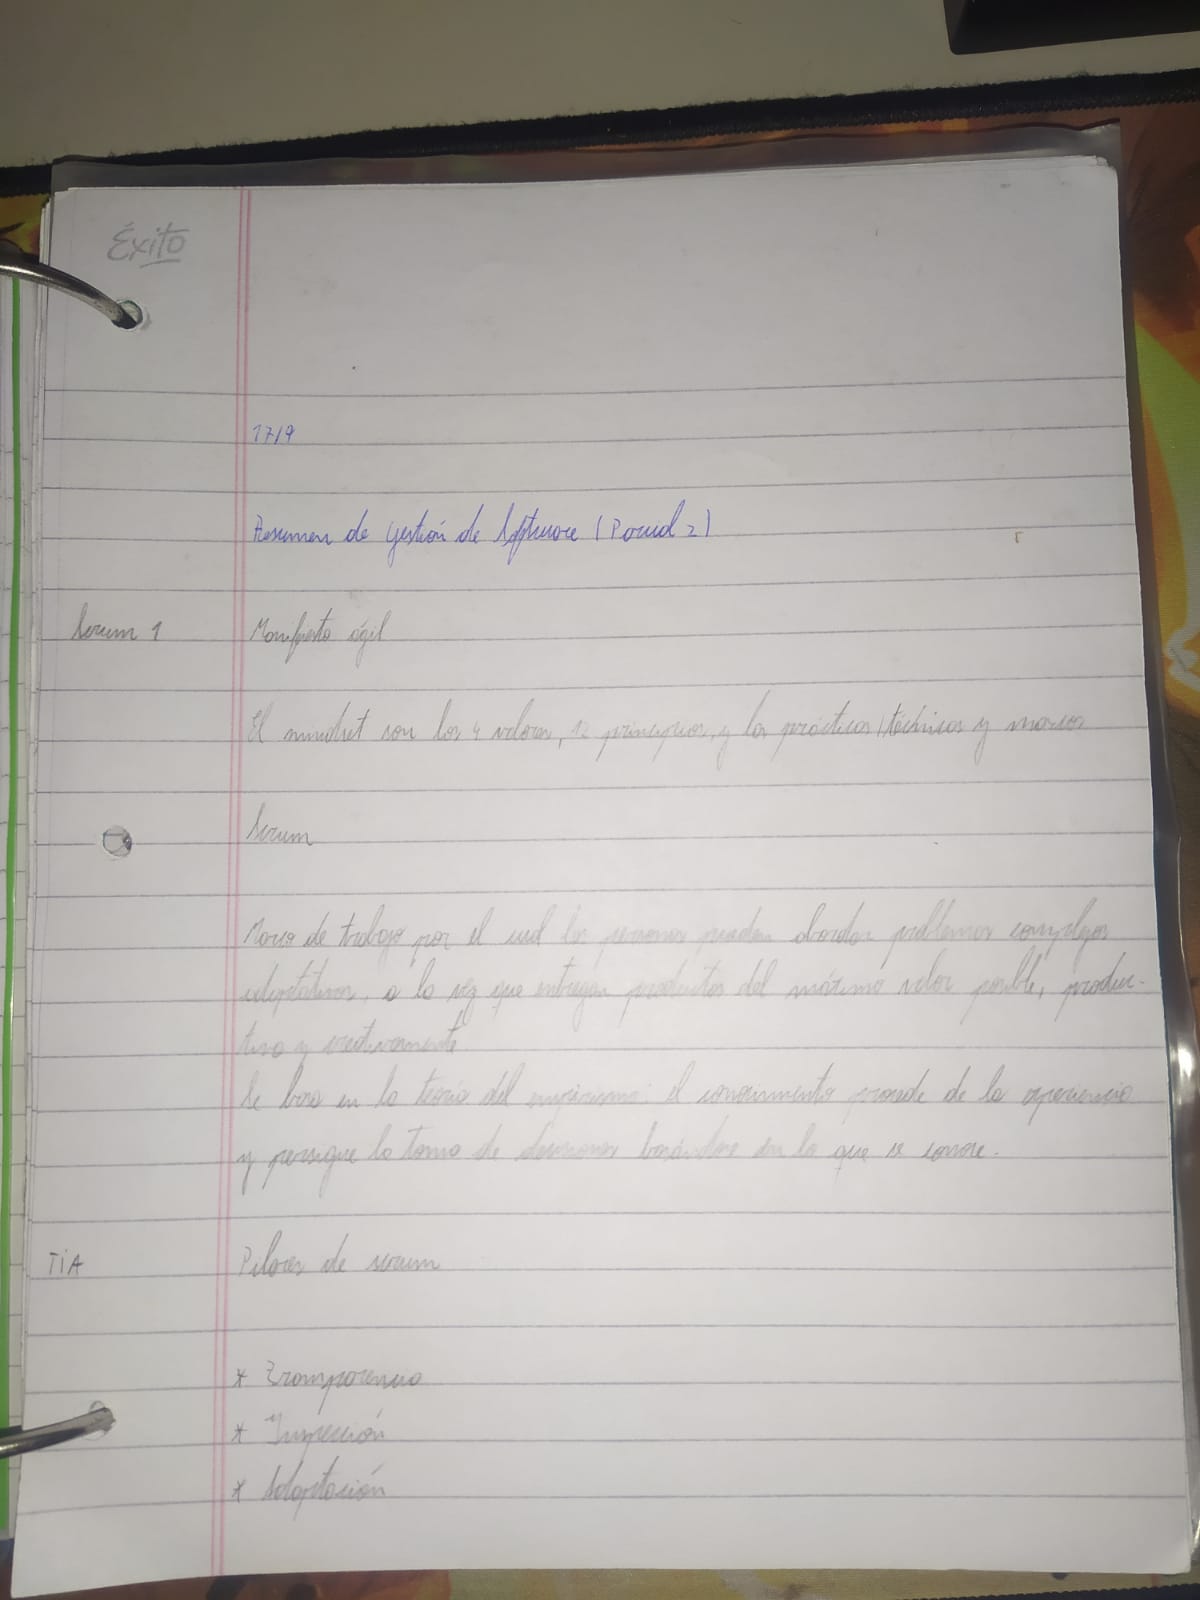 Éxito
17/9
Resumen de Gestión de Software (Parcial 2)
Scrum 1
Manifiesto ágil
El mindset son los 4 valores, 12 principios, y las prácticas/técnicas y marcos
Scrum
Marco de trabajo por el cual las personas pueden abordar problemas complejos
adaptativos, a la vez que entregan productos del máximo valor posible, produc-
tiva y creativamente
Se basa en la teoría del empirismo: el conocimiento procede de la experiencia
y persigue la toma de decisiones basándose en lo que se conoce.
TiA
Pilares de scrum
* Transparencia
* Inspección
* Adaptación